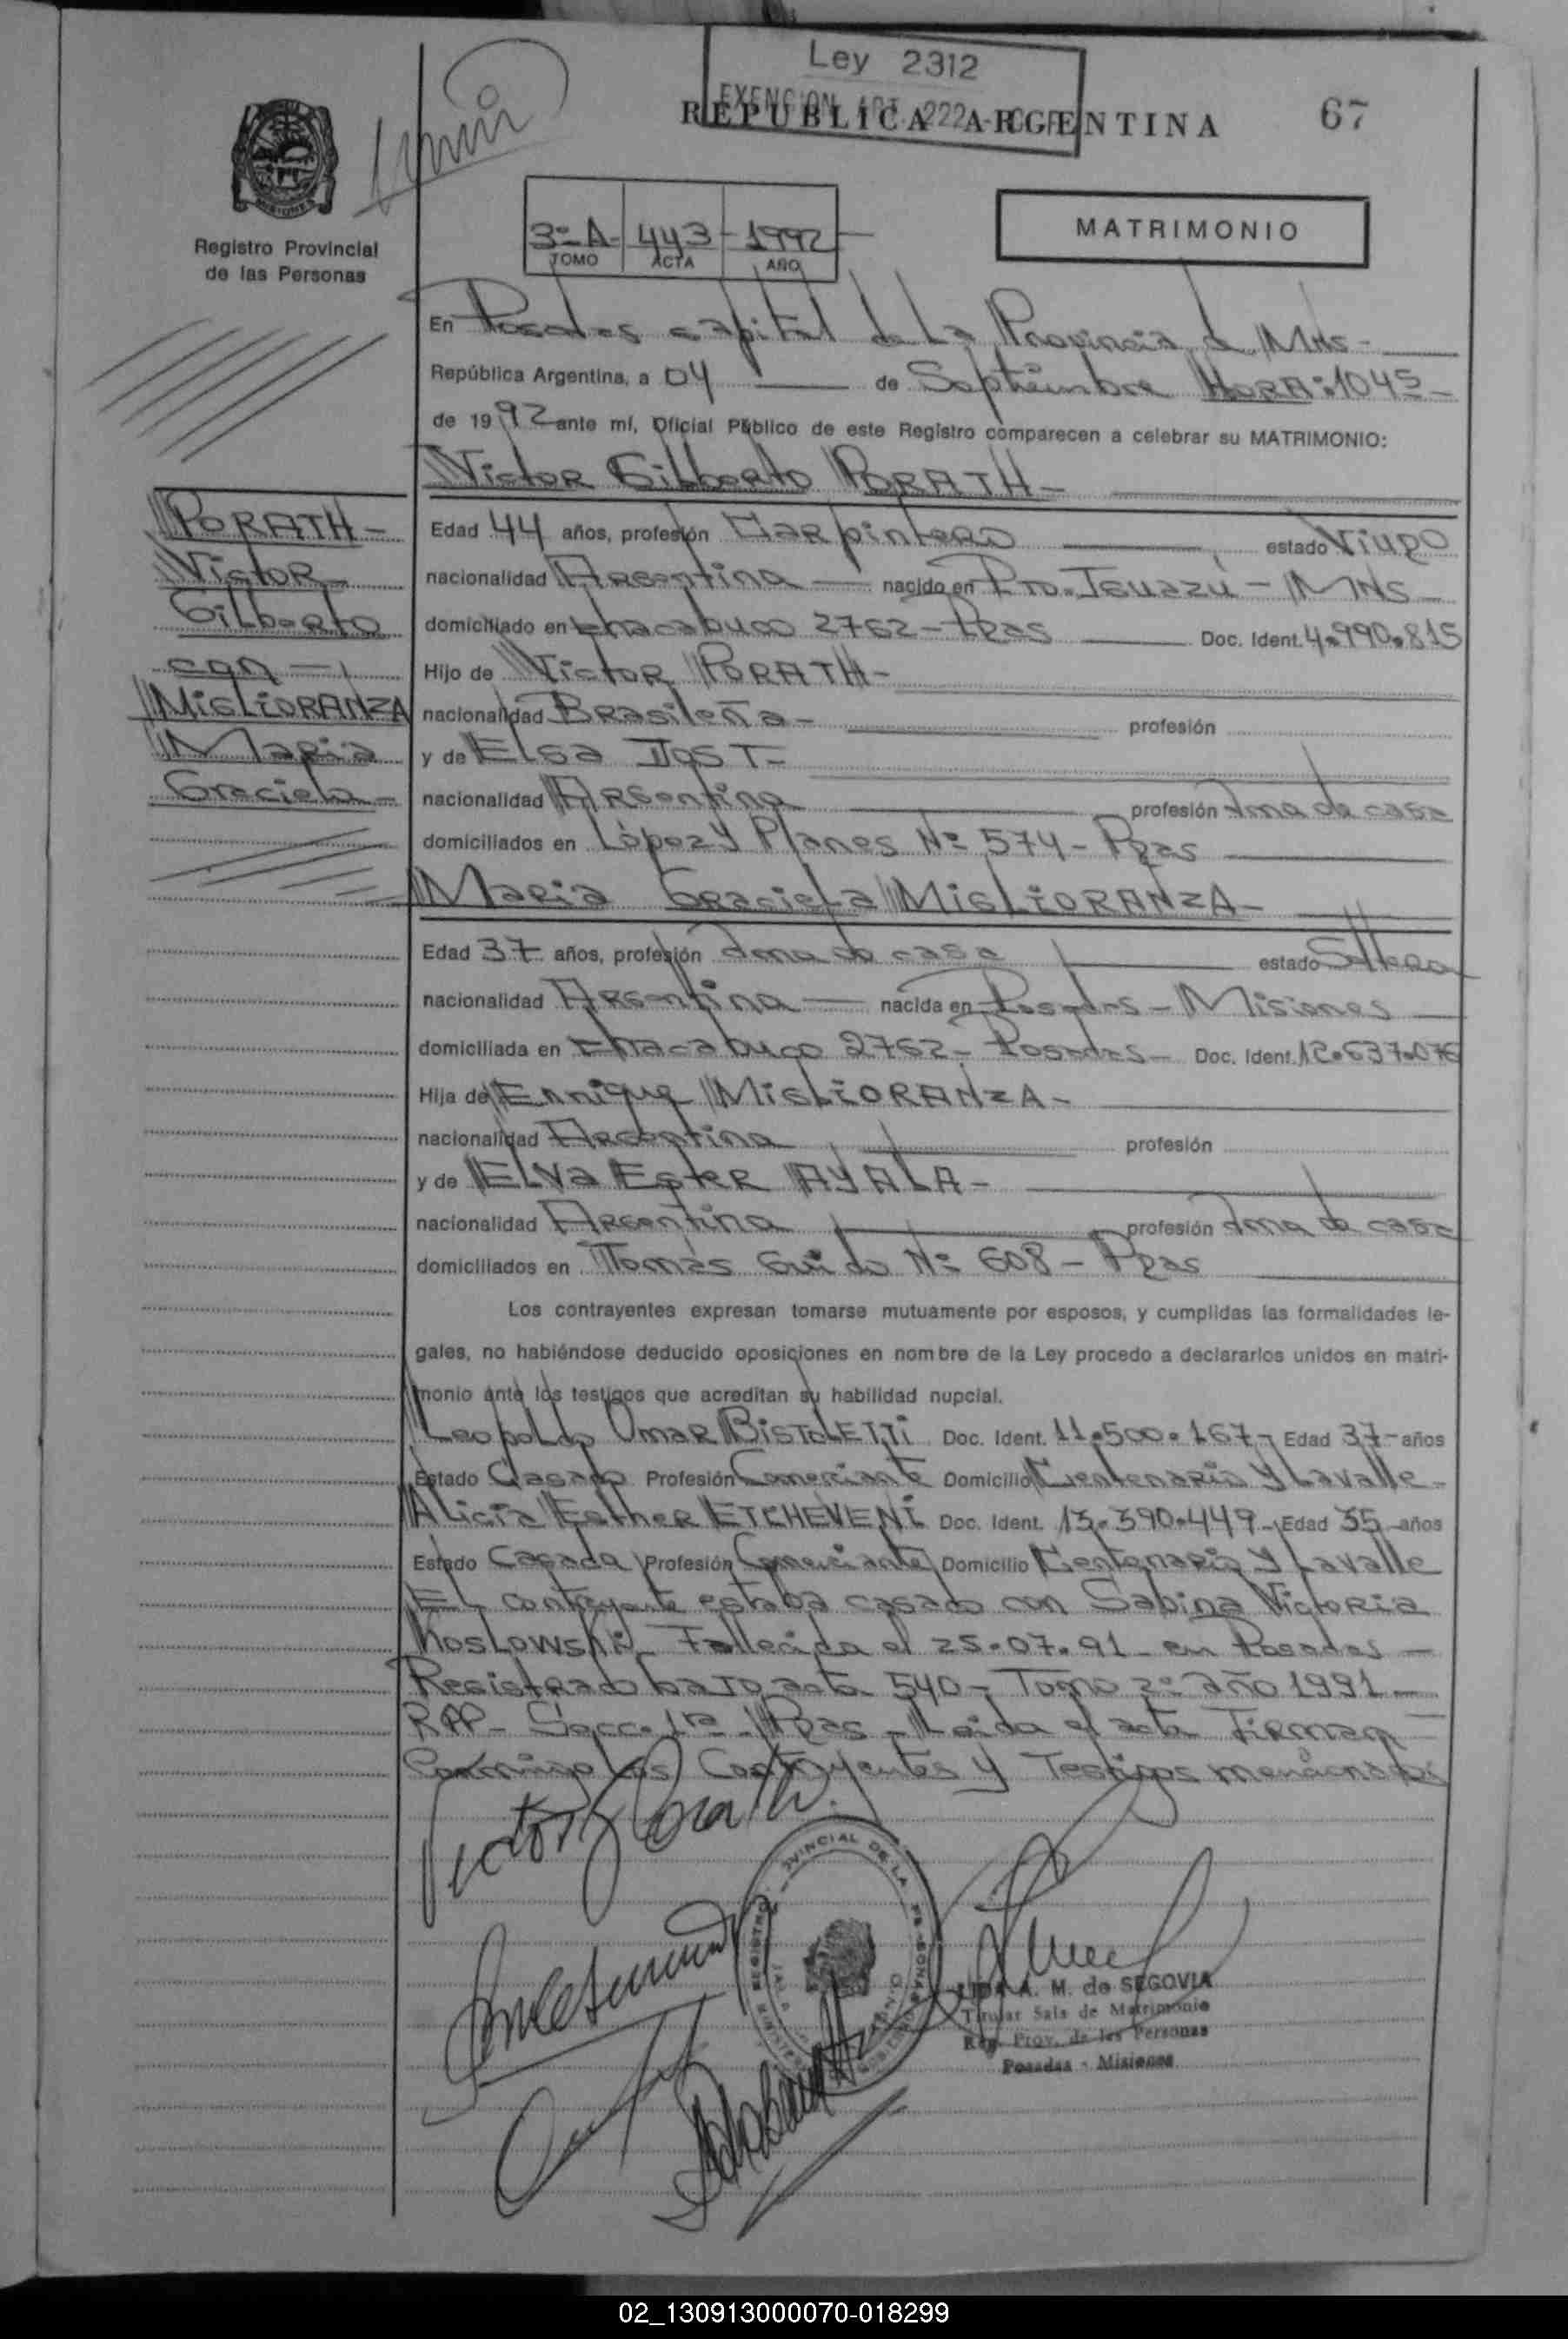 Ley 2312
EXENCION ART. 222
REPUBLICA ARGENTINA
67
MISIONES
Registro Provincial
de las Personas
3º-A- 443 - 1992
TOMO ACTA AÑO
MATRIMONIO
En Posadas capital de La Provincia de MNS-
República Argentina, a 04 de Septiembre HORA:1045-
de 1992 ante mí, Oficial Público de este Registro comparecen a celebrar su MATRIMONIO:
Victor Gilberto PORATH-
PORATH-
Victor
Gilberto
con
MIGLIORANZA
Maria
Graciela-
Edad 44 años, profesión Carpintero estado Viudo
nacionalidad Argentina nacido en Pto. Iguazú - MNS-
domiciliado en Chacabuco 2762-Pdas Doc. Ident. 4.990.815
Hijo de Victor PORATH-
nacionalidad Brasileña- profesión
y de Elsa JOST-
nacionalidad Argentina profesión Ama de casa
domiciliados en López y Planes Nº 574- Pdas
Maria Graciela MIGLIORANZA-
Edad 37 años, profesión Ama de casa estado Soltera
nacionalidad Argentina nacida en Posadas - Misiones
domiciliada en Chacabuco 2762- Posadas- Doc. Ident. 12.637.076
Hija de Enrique MIGLIORANZA-
nacionalidad Argentina profesión
y de ELVa Ester AYALA-
nacionalidad Argentina profesión Ama de casa
domiciliados en Tomás Guido Nº 608- Pdas
Los contrayentes expresan tomarse mutuamente por esposos, y cumplidas las formalidades le-
gales, no habiéndose deducido oposiciones en nombre de la Ley procedo a declararlos unidos en matri-
monio ante los testigos que acreditan su habilidad nupcial.
Leopoldo Omar BISTOLETTI Doc. Ident. 11.500.167- Edad 37- años
Estado Casado Profesión Comerciante Domicilio Centenario y Lavalle-
Alicia Esther ETCHEVENI Doc. Ident. 13.390.449- Edad 35 años
Estado Casada Profesión Comerciante Domicilio Centenario y Lavalle
El contrayente estaba casado con Sabina Victoria
Koslowski- Fallecida el 25.07.91- en Posadas-
Registrado bajo acta 540- Tomo 2º año 1991-
RPP- Secc. 1ra- Pdas- Leida el acta Firman
Conmigo Los Contrayentes y Testigos mencionados
A. M. de SEGOVIA
Titular Sala de Matrimonio
Reg. Prov. de las Personas
Posadas - Misiones
02_130913000070-018299